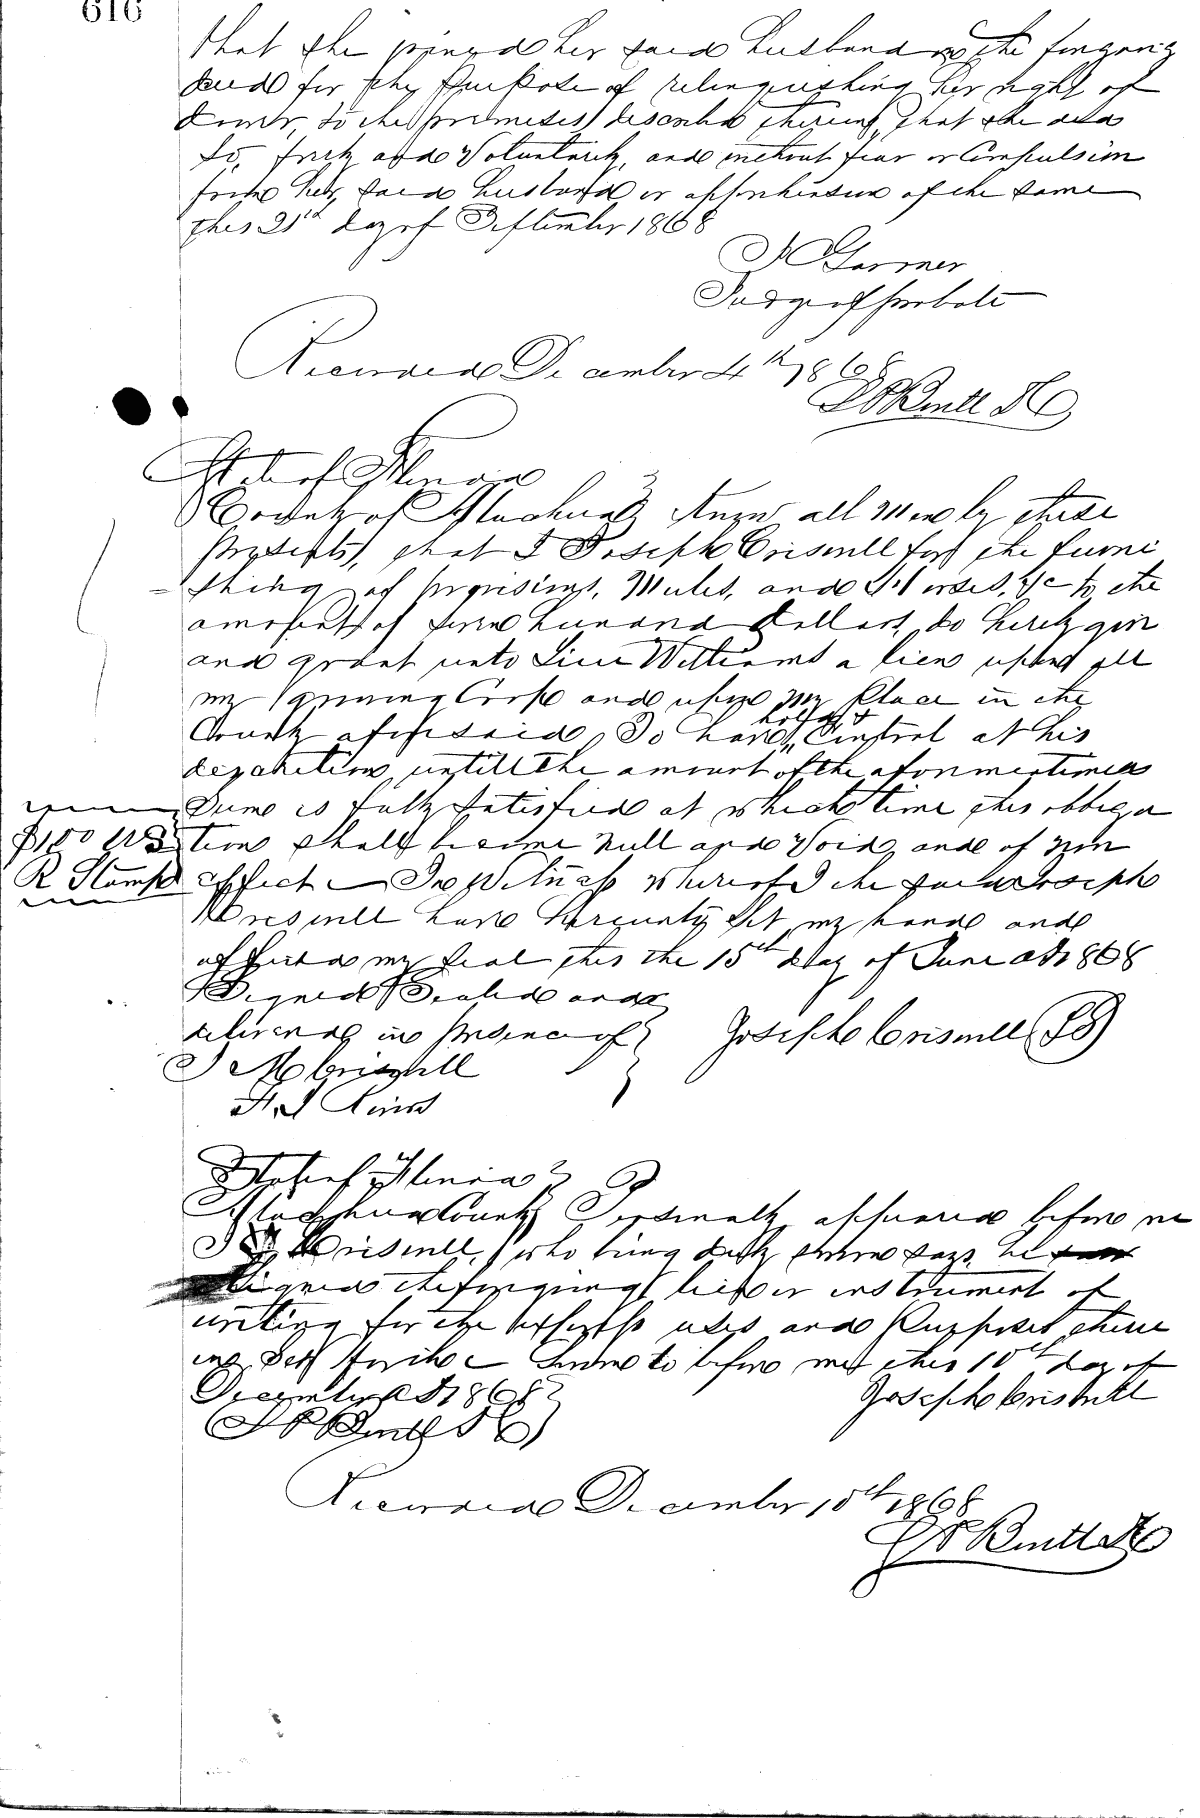 616
that she joined her said husband in the foregoing
deed for the purpose of relinquishing her right of
dower, to the premises described therein, that she did
so, freely and voluntarily, and without fear or Compulsion
from her, said husband or apprehension of the same
this 21st day of September 1868
J C Garner
Judge of probate
Recorded December 4th 1868
State of Florida
County of Alachua Know all Men by these
presents, that I Joseph Criswell for the furni
shing of provisions, Mules, and Horses, &c to the
amount of seven hundred dollars, do hereby give
and grant unto Williams a lien upon all
my growing Crop and upon my Place in the
County aforesaid, To have, Control at his
untill the amount of the aforementioned
Sum is fully satisfied at which time this obliga
tion shall become null and Void, and of non
R Stamp
effect In Witness whereof I the said Joseph
Criswell have hereunto set my hand and
affixed my seal this the 15th day of June AD 1868
Signed Sealed and
delivered in presence of
Joseph Criswell (LS)
J M Criswell
State of Florida
Alachua County Personally appeared before me
Criswell, who being duly sworn says he
signed the foregoing lien or instrument of
writing for the express uses and Purposes there
in set forth Sworn to before me this 10th day of
December AD 1868
Joseph Criswell
Recorded December 10th 1868